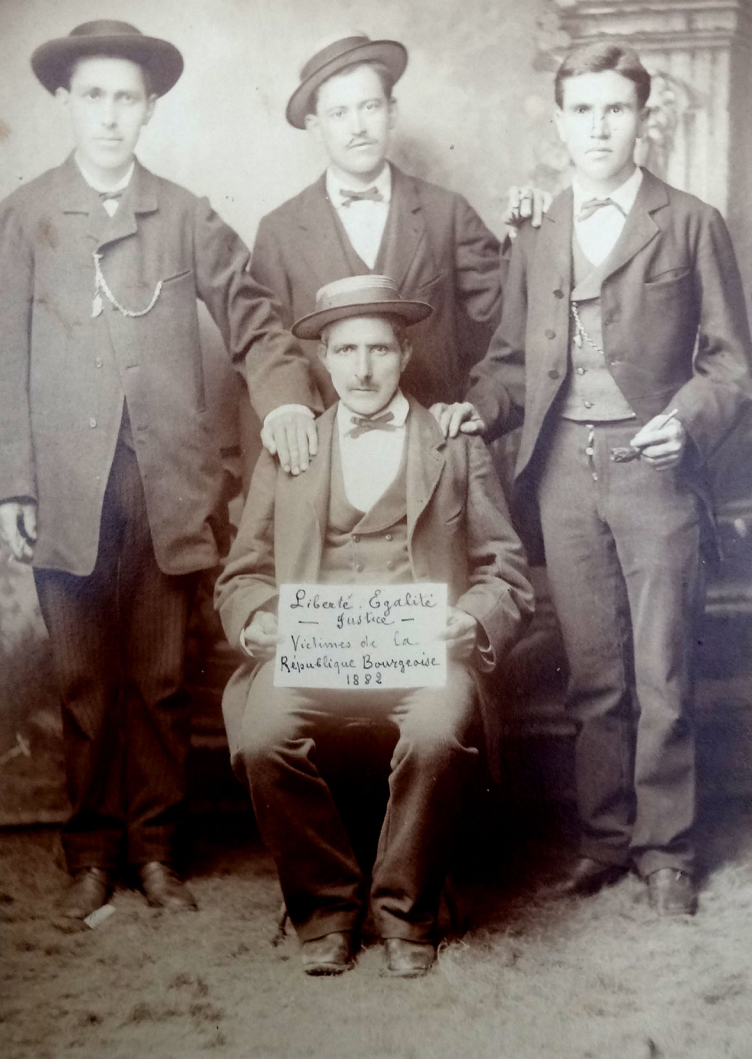 Liberté. Egalité
— Justice —
Victimes de la
République Bourgeoise
1882